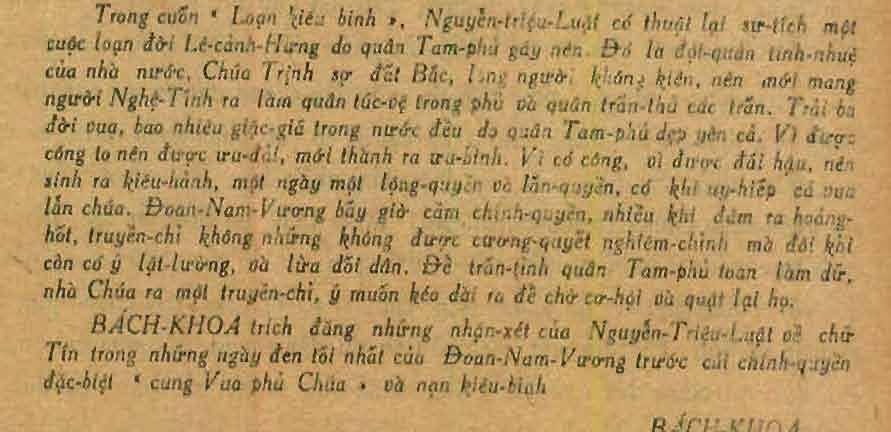 Trong cuốn « Loạn kiêu binh », Nguyễn-triệu-Luật có thuật lại sự-tích một
cuộc loạn đời Lê-cảnh-Hưng do quân Tam-phủ gây nên. Đó là đội-quân tinh-nhuệ
của nhà nước, Chúa Trịnh sợ đất Bắc, lòng người không kiên, nên mới mang
người Nghệ-Tĩnh ra làm quân túc-vệ trong phủ và quân trấn-thủ các trấn. Trải ba
đời vua, bao nhiêu giặc-giã trong nước đều do quân Tam-phủ dẹp yên cả. Vì được
công to nên được ưu-đãi, mới thành ra ưu-binh. Vì có công, vì được đãi hậu, nên
sinh ra kiêu-hành, một ngày một lộng-quyền và lấn-quyền, có khi uy-hiếp cả vua
lẫn chúa. Đoan-Nam-Vương bấy giờ cầm chính-quyền, nhiều khi đâm ra hoảng-
hốt, truyền-chỉ không những không được cương-quyết nghiêm-chỉnh mà đôi khi
còn có ý lật-lường, và lừa dối dân. Để trấn-tĩnh quân Tam-phủ toan làm dữ,
nhà Chúa ra một truyền-chỉ, ý muốn kéo dài ra để chờ cơ-hội và quật lại họ.
BÁCH-KHOA trích đăng những nhận-xét của Nguyễn-Triệu-Luật về chữ
Tín trong những ngày đen tối nhất của Đoan-Nam-Vương trước cái chính-quyền
đặc-biệt « cung Vua phủ Chúa » và nạn kiêu-binh
BÁCH-KHOA